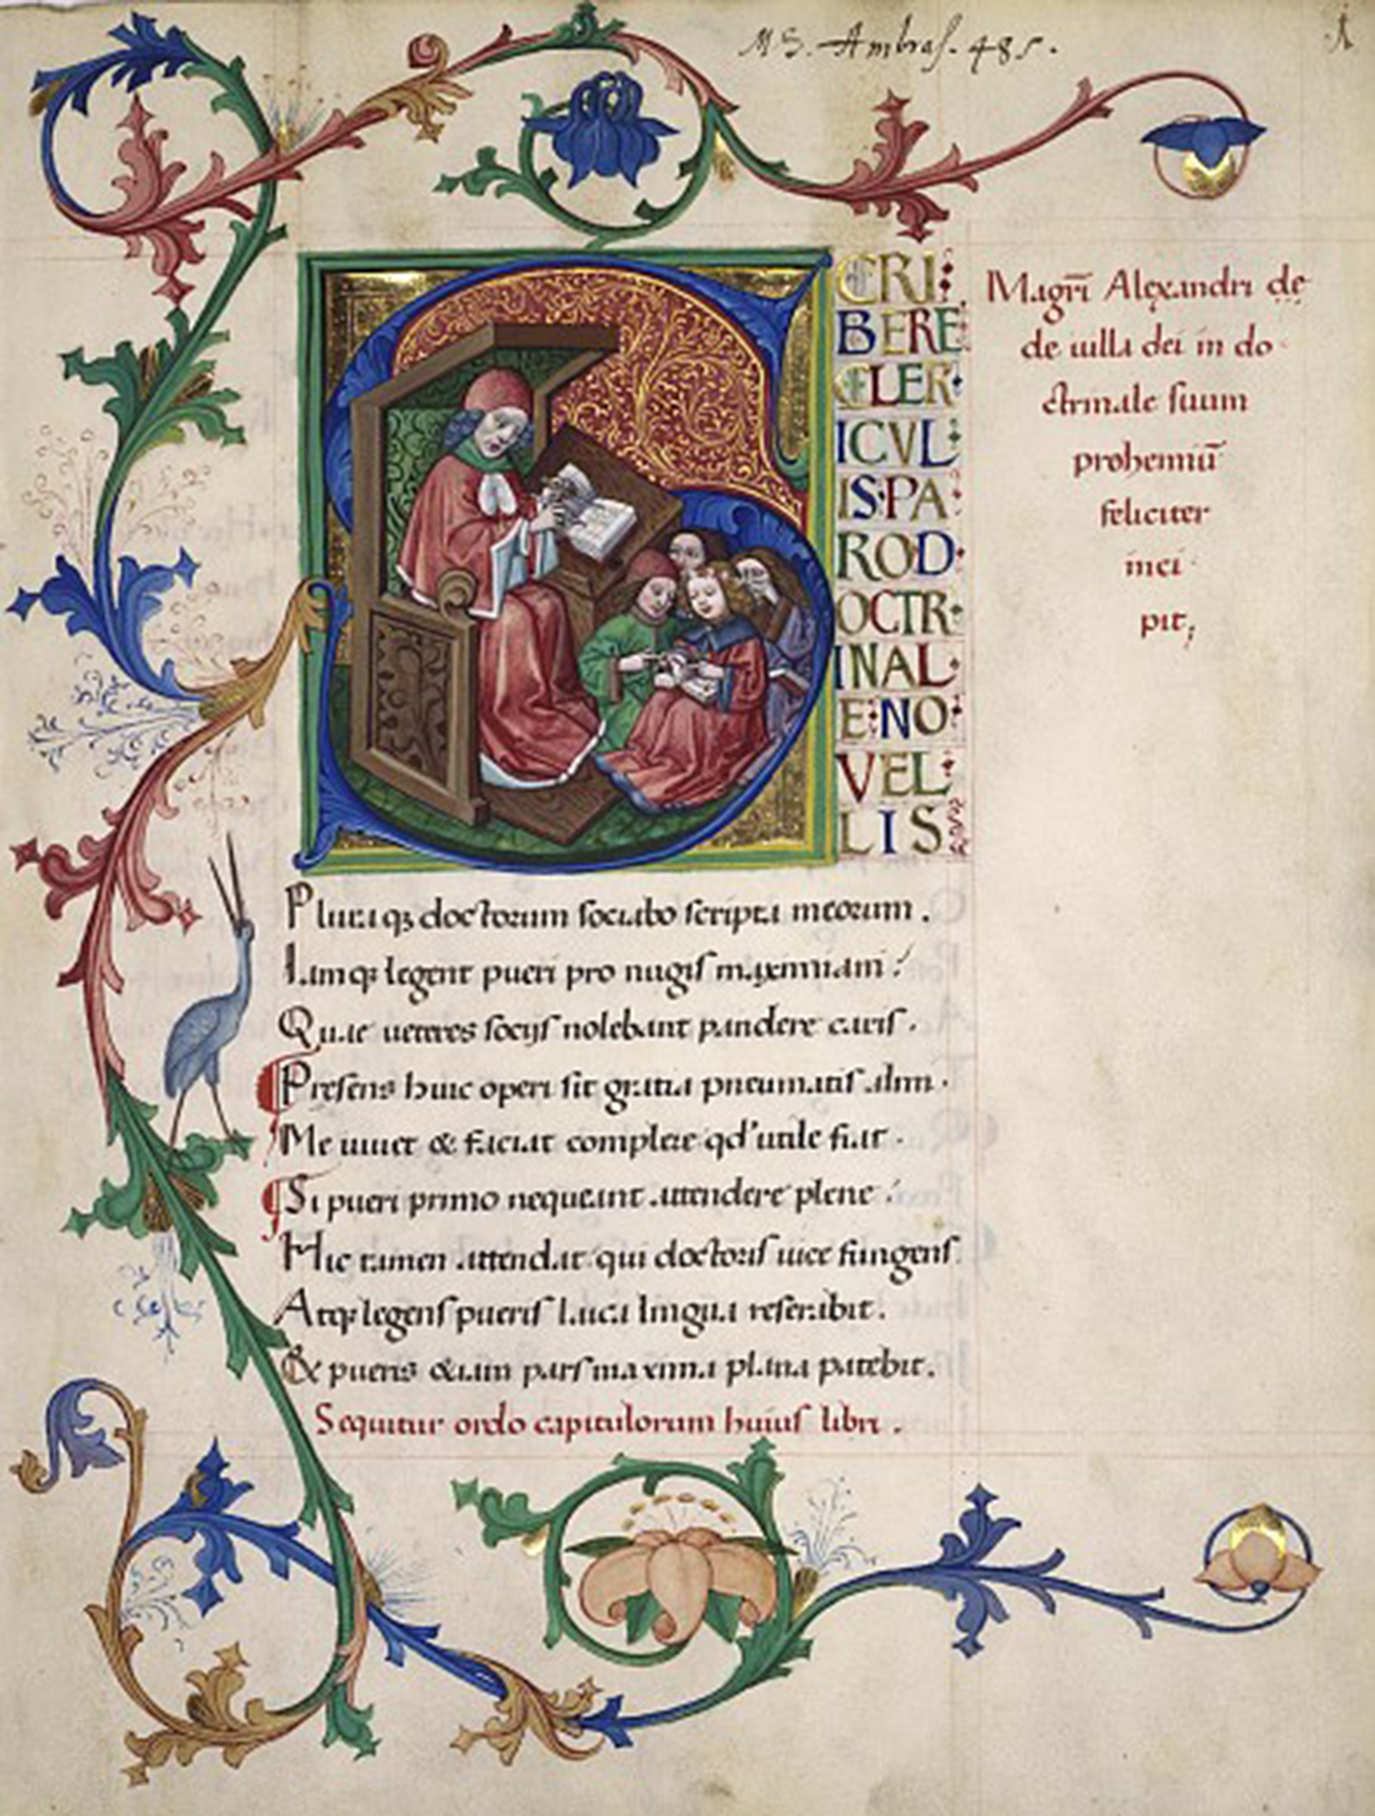 MS. Ambras. 485.
1
S
CRI
BERE
CLER
ICVL
IS·PA
ROD
OCTR
INAL
E·NO
VEL
LIS
Magrī Alexandri de
de uilla dei in do
ctrinale suum
prohemiū
feliciter
inci
pit;
Pluraqꝫ doctorum sociabo scripta meorum .
Iamqꝫ legent pueri pro nugis maximiani :
Quae ueteres socijs nolebant pandere caris .
Presens huic operi sit gratia pneumatis almi .
Me iuuet & faciat complere qd' utile fiat .
Si pueri primo nequeant attendere plene :
Hic tamen attendat qui doctoris uice fungens
Atqꝫ legens pueris laica lingua reserabit .
Et pueris etiam pars maxima plana patebit .
Sequitur ordo capitulorum huius libri .